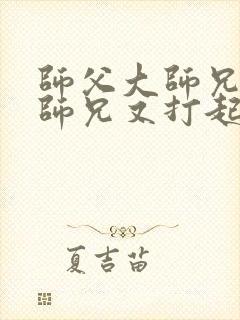 師父大師兄
師兄又打起
夏吉苗